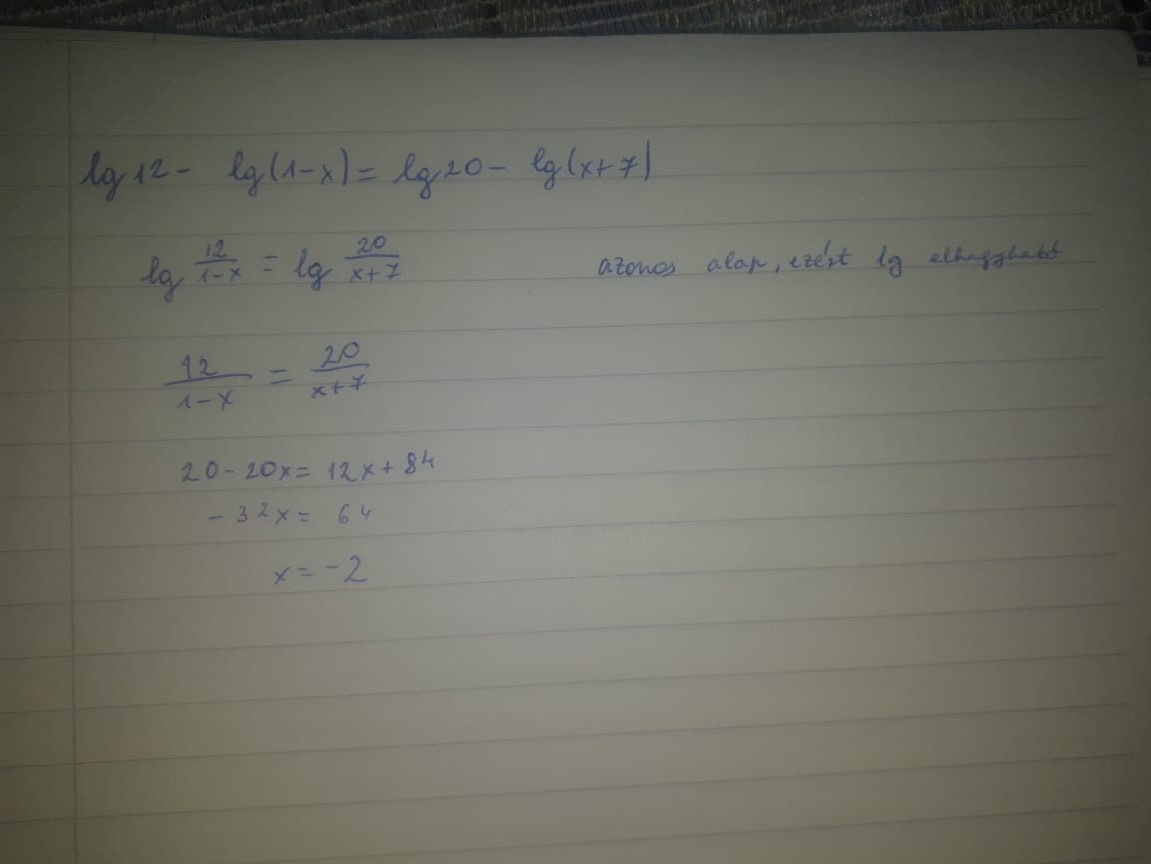 lg 12 - lg(1-x) = lg 20 - lg(x+7)
lg 12/1-x = lg 20/x+7 azonos alap, ezért lg elhagyható
12/1-x = 20/x+7
20-20x = 12x+84
-32x = 64
x = -2